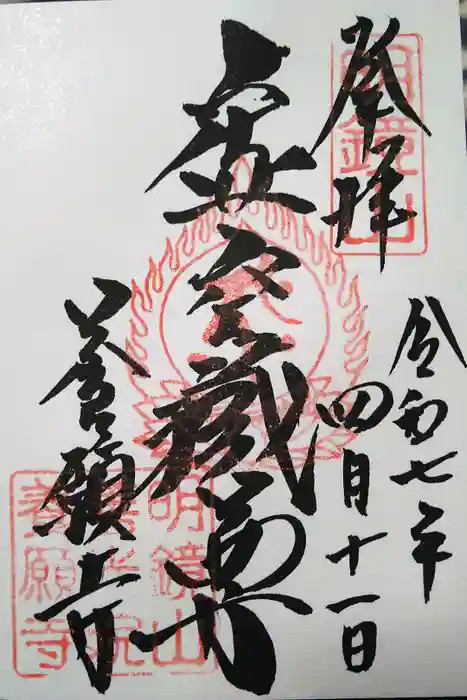 奉拝
明鏡山
令和七年
四月十一日
虚空蔵尊
養願寺
明鏡山
善光院
養願寺